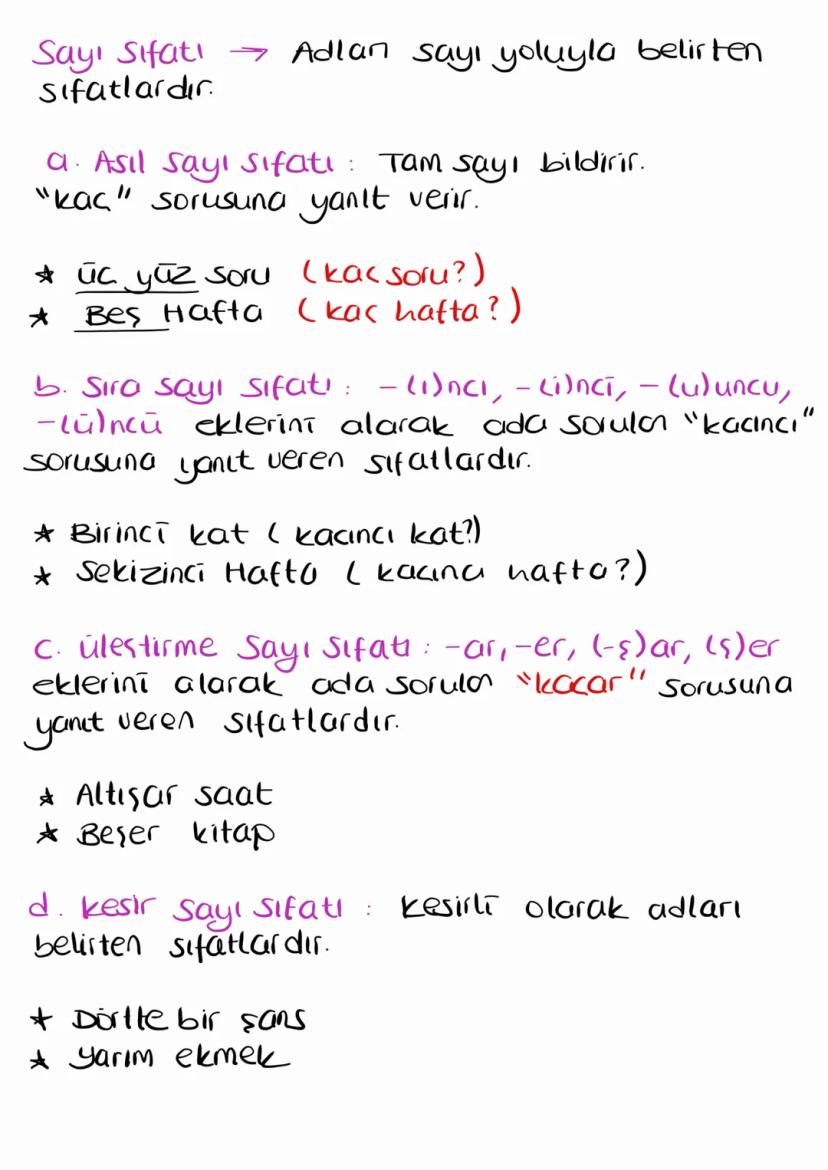 Sayı Sıfatı → Adları sayı yoluyla belirten
sıfatlardır.
a. Asıl Sayı Sıfatı : Tam sayı bildirir.
"kaç" sorusuna yanıt verir.
* üç yüz soru (kaç soru?)
* Beş Hafta (kaç hafta?)
b. Sıra Sayı Sıfatı : -(ı)ncı, -(i)nci, -(u)uncu,
-(ü)ncü eklerini alarak ada sorulan "kaçıncı"
sorusuna yanıt veren sıfatlardır.
* Birinci kat ( kaçıncı kat?)
* Sekizinci Hafta ( kaçıncı hafta?)
c. Üleştirme Sayı Sıfatı : -ar, -er, (-ş)ar, (ş)er
eklerini alarak ada sorulan "kaçar" sorusuna
yanıt veren sıfatlardır.
* Altışar saat
* Beşer kitap
d. Kesir Sayı Sıfatı : Kesirli olarak adları
belirten sıfatlardır.
* Dörtte bir şans
* Yarım ekmek